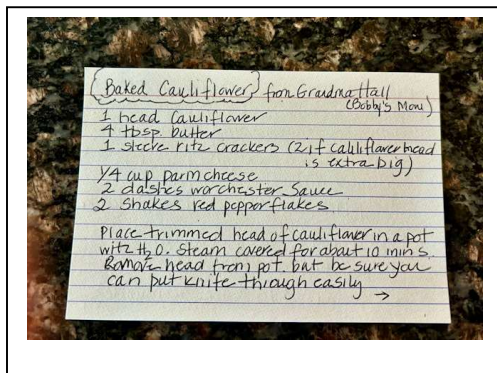 Baked Cauliflower from Grandma Hall
(Bobby's Mom)
1 head Cauliflower
4 tbsp. butter
1 sleeve ritz crackers (2 if cauliflower head
is extra big)
1/4 cup parm cheese
2 dashes worchester sauce
2 shakes red pepper flakes
Place trimmed head of cauliflower in a pot
with H2O. Steam covered for about 10 mins.
Remove head from pot, but be sure you
can put knife through easily
→